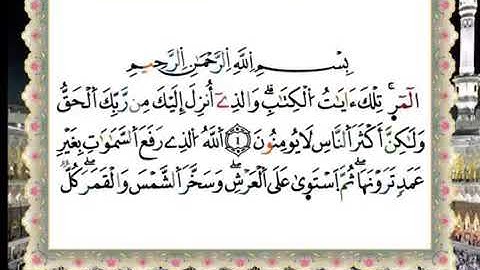 بِسْمِ اللَّهِ الرَّحْمَٰنِ الرَّحِيمِ
الٓمٓرۚ تِلْكَ ءَايَٰتُ الْكِتَٰبِۗ وَالذِےٓ أُنزِلَ إِلَيْكَ مِن رَّبِّكَ اَلْحَقُّ
وَلَٰكِنَّ أَكْثَرَ اَلنَّاسِ لَا يُومِنُونَ ١ اَللَّهُ اُلذِے رَفَعَ اَلسَّمَٰوَٰتِ بِغَيْرِ
عَمَدٍ تَرَوْنَهَاۖ ثُمَّ اَسْتَوَىٰ عَلَى اَلْعَرْشِۖ وَسَخَّرَ اَلشَّمْسَ وَالْقَمَرَۖ كُلٌّ